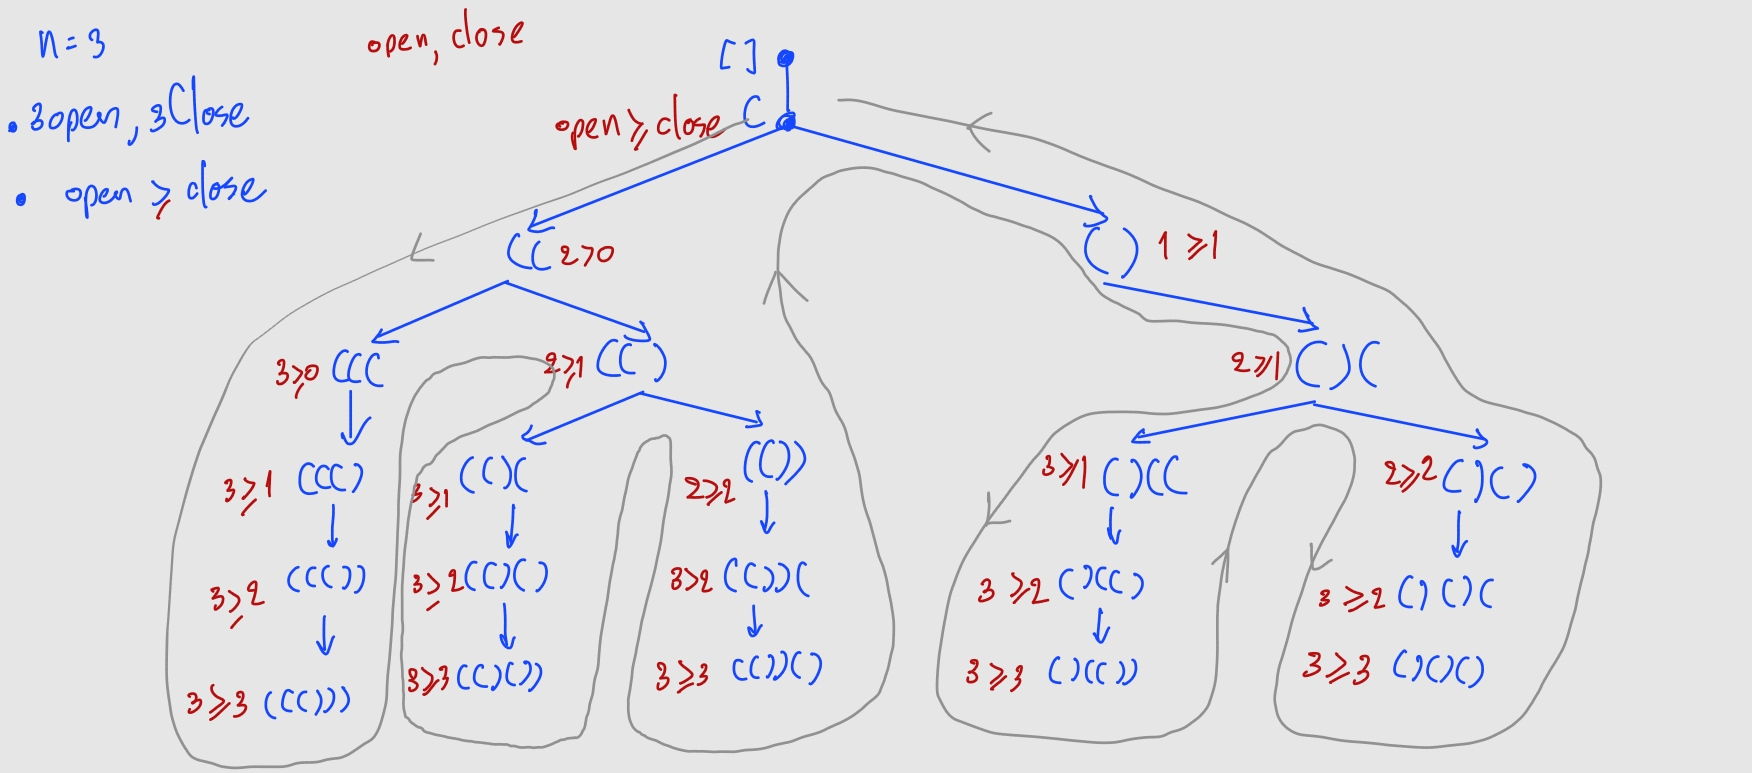 n=3
open, close
[ ]
• 3open, 3Close
open ⩾ close (
• open ⩾ close
(( 2>0
( ) 1 ⩾1
3⩾0 (((
2⩾1 (( )
2⩾1 ( ) (
3⩾1 ((( )
3⩾1 (( ) (
2⩾2 (( ))
3⩾1 ( ) ((
2⩾2 ( ) ( )
3⩾2 ((( ))
3⩾2 (( ) ( )
3>2 (( )) (
3 ⩾2 ( ) (( )
3 ⩾2 ( ) ( ) (
3⩾3 ((( )))
3⩾3 (( ) ( ))
3 ⩾3 (( )) ( )
3 ⩾3 ( ) (( ))
3 ⩾3 ( ) ( ) ( )